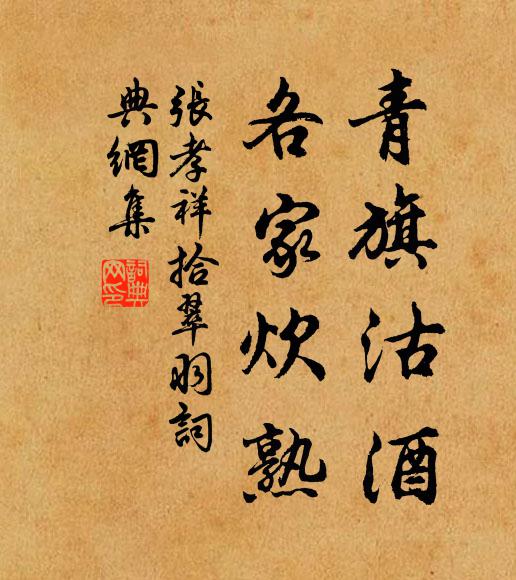 青旗沽酒
各家炊熟
張孝祥拾翠羽詞
典網集
詞典
网印